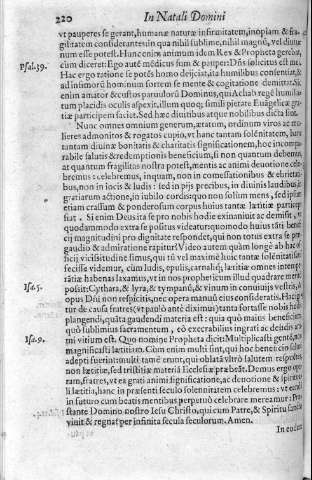 220 In Natali Domini
vt pauperes se gerant, humanæ naturæ infirmitatem, inopiam & fra-
gilitatem considerantes in qua nihil sublime, nihil magnũ, vel diutur
num esse potest. Hanc enim animum idem Rex & Propheta gerebat,
Psal.39. cùm diceret: Ego autẽ mẽdicus sum & pauper: Dñs solicitus est mei.
Hac ergo ratione se potẽs homo deijciat, ita humilibus consentiat, &
ad infimorũ hominum sortem se mente & cogitatione demittat. Si
enim amator & custos paruulorũ Dominus, qui Achab regẽ humilia-
tum placidis oculis aspexit, illum quoq; simili pietate Euãgelicæ gra-
tiæ participem faciat. Sed hæc diuitibus atque nobilibus dicta sint.
Nunc omnes omnium generum, ætatum, ordinum viros ac mu-
lieres admonitos & rogatos cupio, vt hanc tantam solẽnitatem, hanc
tantam diuinæ bonitatis & charitatis significationem, hoc incompa-
rabile salutis & redemptionis beneficium, si non quantum debemus,
at quantum fragilitas nostra potest, mentis ac animi deuotione cele-
bremus: celebremus, inquam, non in comessationibus & ebrietati-
bus, non in iocis & ludis: sed in pijs precibus, in diuinis laudibus, in
gratiarum actione, in iubilo cordis: quo non solùm mens, sed ipsum
etiam crassum & ponderosum corpus huius tantæ lætitiæ particeps
fiat. Si enim Deus ita se pro nobis hodie exinaniuit ac demisit, vt
quodammodo extra se positus videatur: quomodo huius tãti benefi-
cij magnitudini pro dignitate respondet, qui non totus extra se præ
gaudio & admiratione rapitur? Video autem quàm longè ab hac of-
ficij vicissitudine simus, qui tũ vel maximè huic tantæ solẽnitati satis-
fecisse videmur, cùm ludis, epulis, carnalíq; lætitiæ omnes intempe-
rãtiæ habenas laxamus, vt in nos propheticum illud quadrare meritò
Isa.5. possit: Cythara, & lyra, & tympanũ, & vinum in conuiuijs vestris, &
opus Dñi non respicitis, nec opera manuũ eius consideratis. Hac igi-
tur de causa fratres (vt paulò antè diximus) tanta fortasse nobis hodie
plangendi, quãta gaudendi materia est: quia quò maius beneficium,
quò sublimius sacramentum, eò execrabilius ingrati ac deuidis ani-
Isa.9. mi vitium est. Quo nomine Propheta dicit: Multiplicasti gentẽ, non
magnificasti lætitiam. Cùm enim multi sint, qui hoc beneficium
adepti fuerint: multi tamẽ erunt, qui oblata vltrò salutem respuentes,
non lætitiæ, sed tristitiæ materiã Ecclesiæ præbẽt. Demus ergo ope-
ram, fratres, vt ea grati animi significatione, ac deuotione & spiritua-
li lætitia, hanc in præsenti seculo solennitatem celebremus: vt eandẽ
in futuro cum beatis mentibus perpetuò celebrare mereamur: Præ-
stante Domino nostro Iesu Christo, qui cum Patre, & Spiritu sancto
viuit & regnat per infinita secula seculorum. Amen.
In eodem